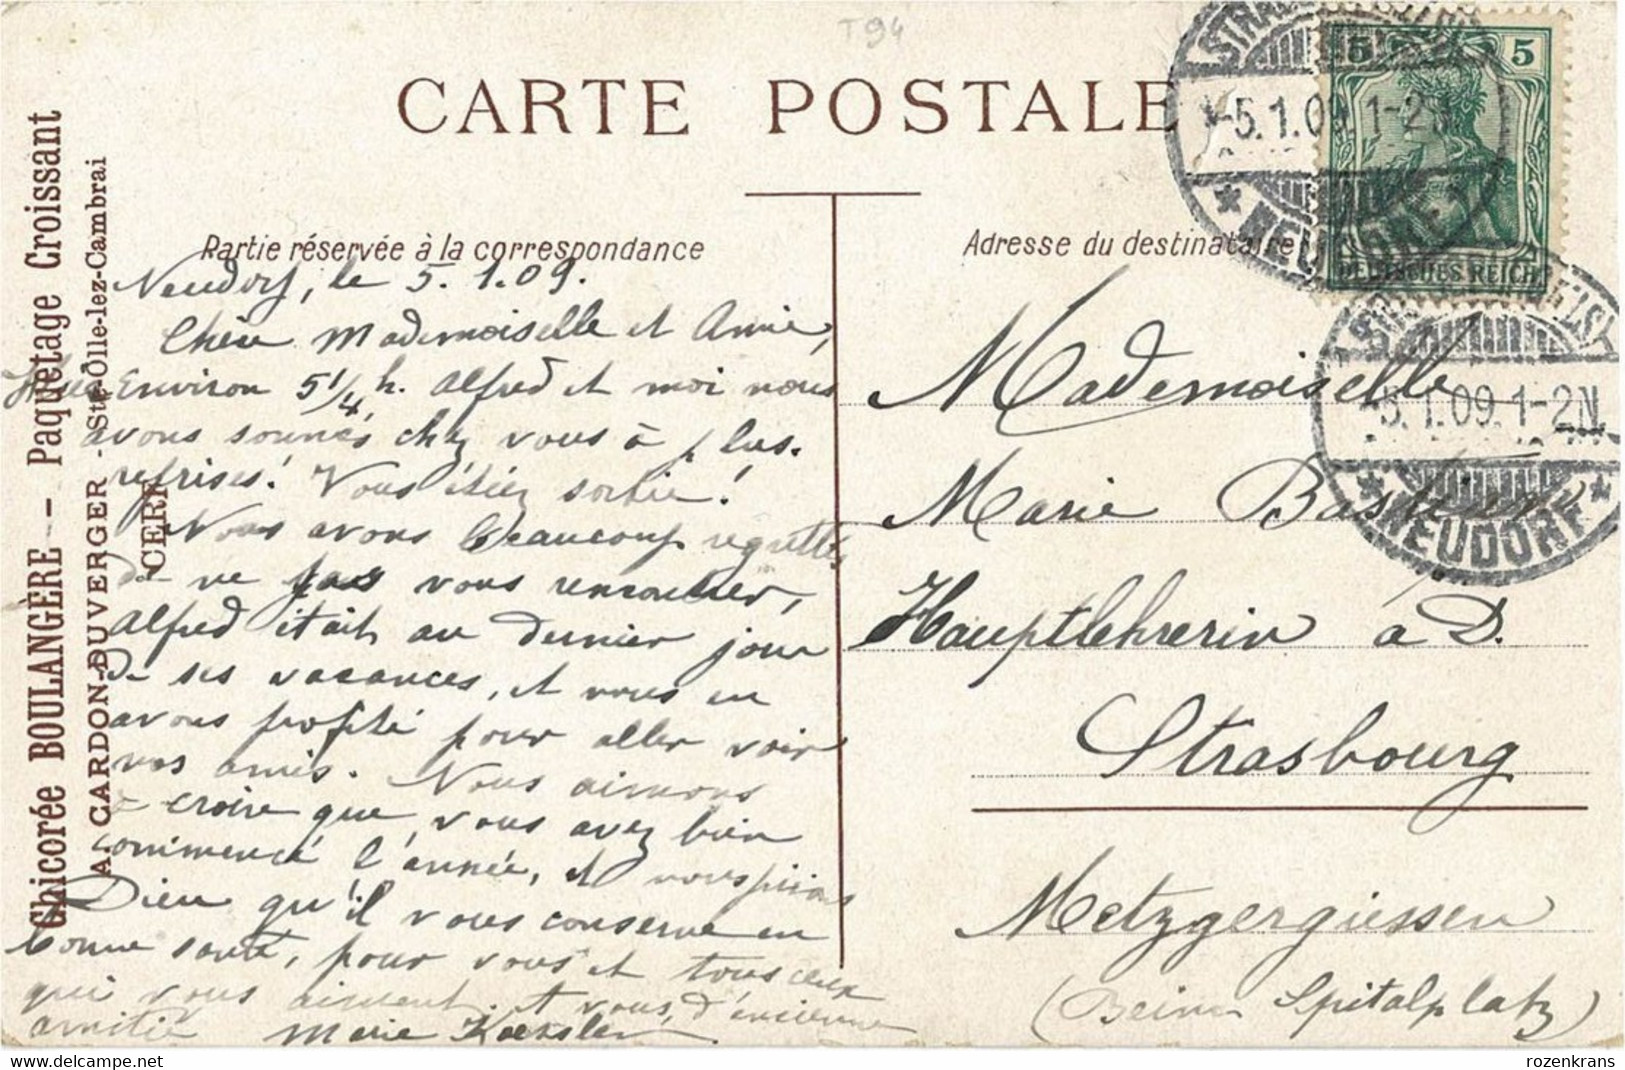 T94
CARTE POSTALE
Partie réservée à la correspondance
Adresse du destinataire
Chicorée BOULANGÈRE - Paquetage Croissant
A. CARDON-DUVERGER - Ste-Olle-lez-Cambrai
CERF
Neudorf, le 5.1.09.
Chère Mademoiselle et Amie,
Hier environ 5 1/4 h. Alfred et moi nous
avons sonnés chez vous à plus.
reprises! Vous étiez sortie!
Nous avons beaucoup regretté
de ne pas vous rencontrer,
Alfred était au dernier jour
de ses vacances, et nous en
avons profité pour aller voir
vos amis. Nous aimons
à croire que vous avez bien
commencé l'année, et nous prions
Dieu qu'il vous conserve en
bonne santé, pour vous et tous ceux
qui vous aiment. A vous, d'ancienne
amitié Marie
5 5
DEUTSCHES REICH
5.1.09.1-2N
* NEUDORF *
5.1.09.1-2N
* NEUDORF *
Mademoiselle
Marie
Hauptlehrerin a D.
Strasbourg
Metzgergiessen
(Beim Spitalplatz)
rozenkrans